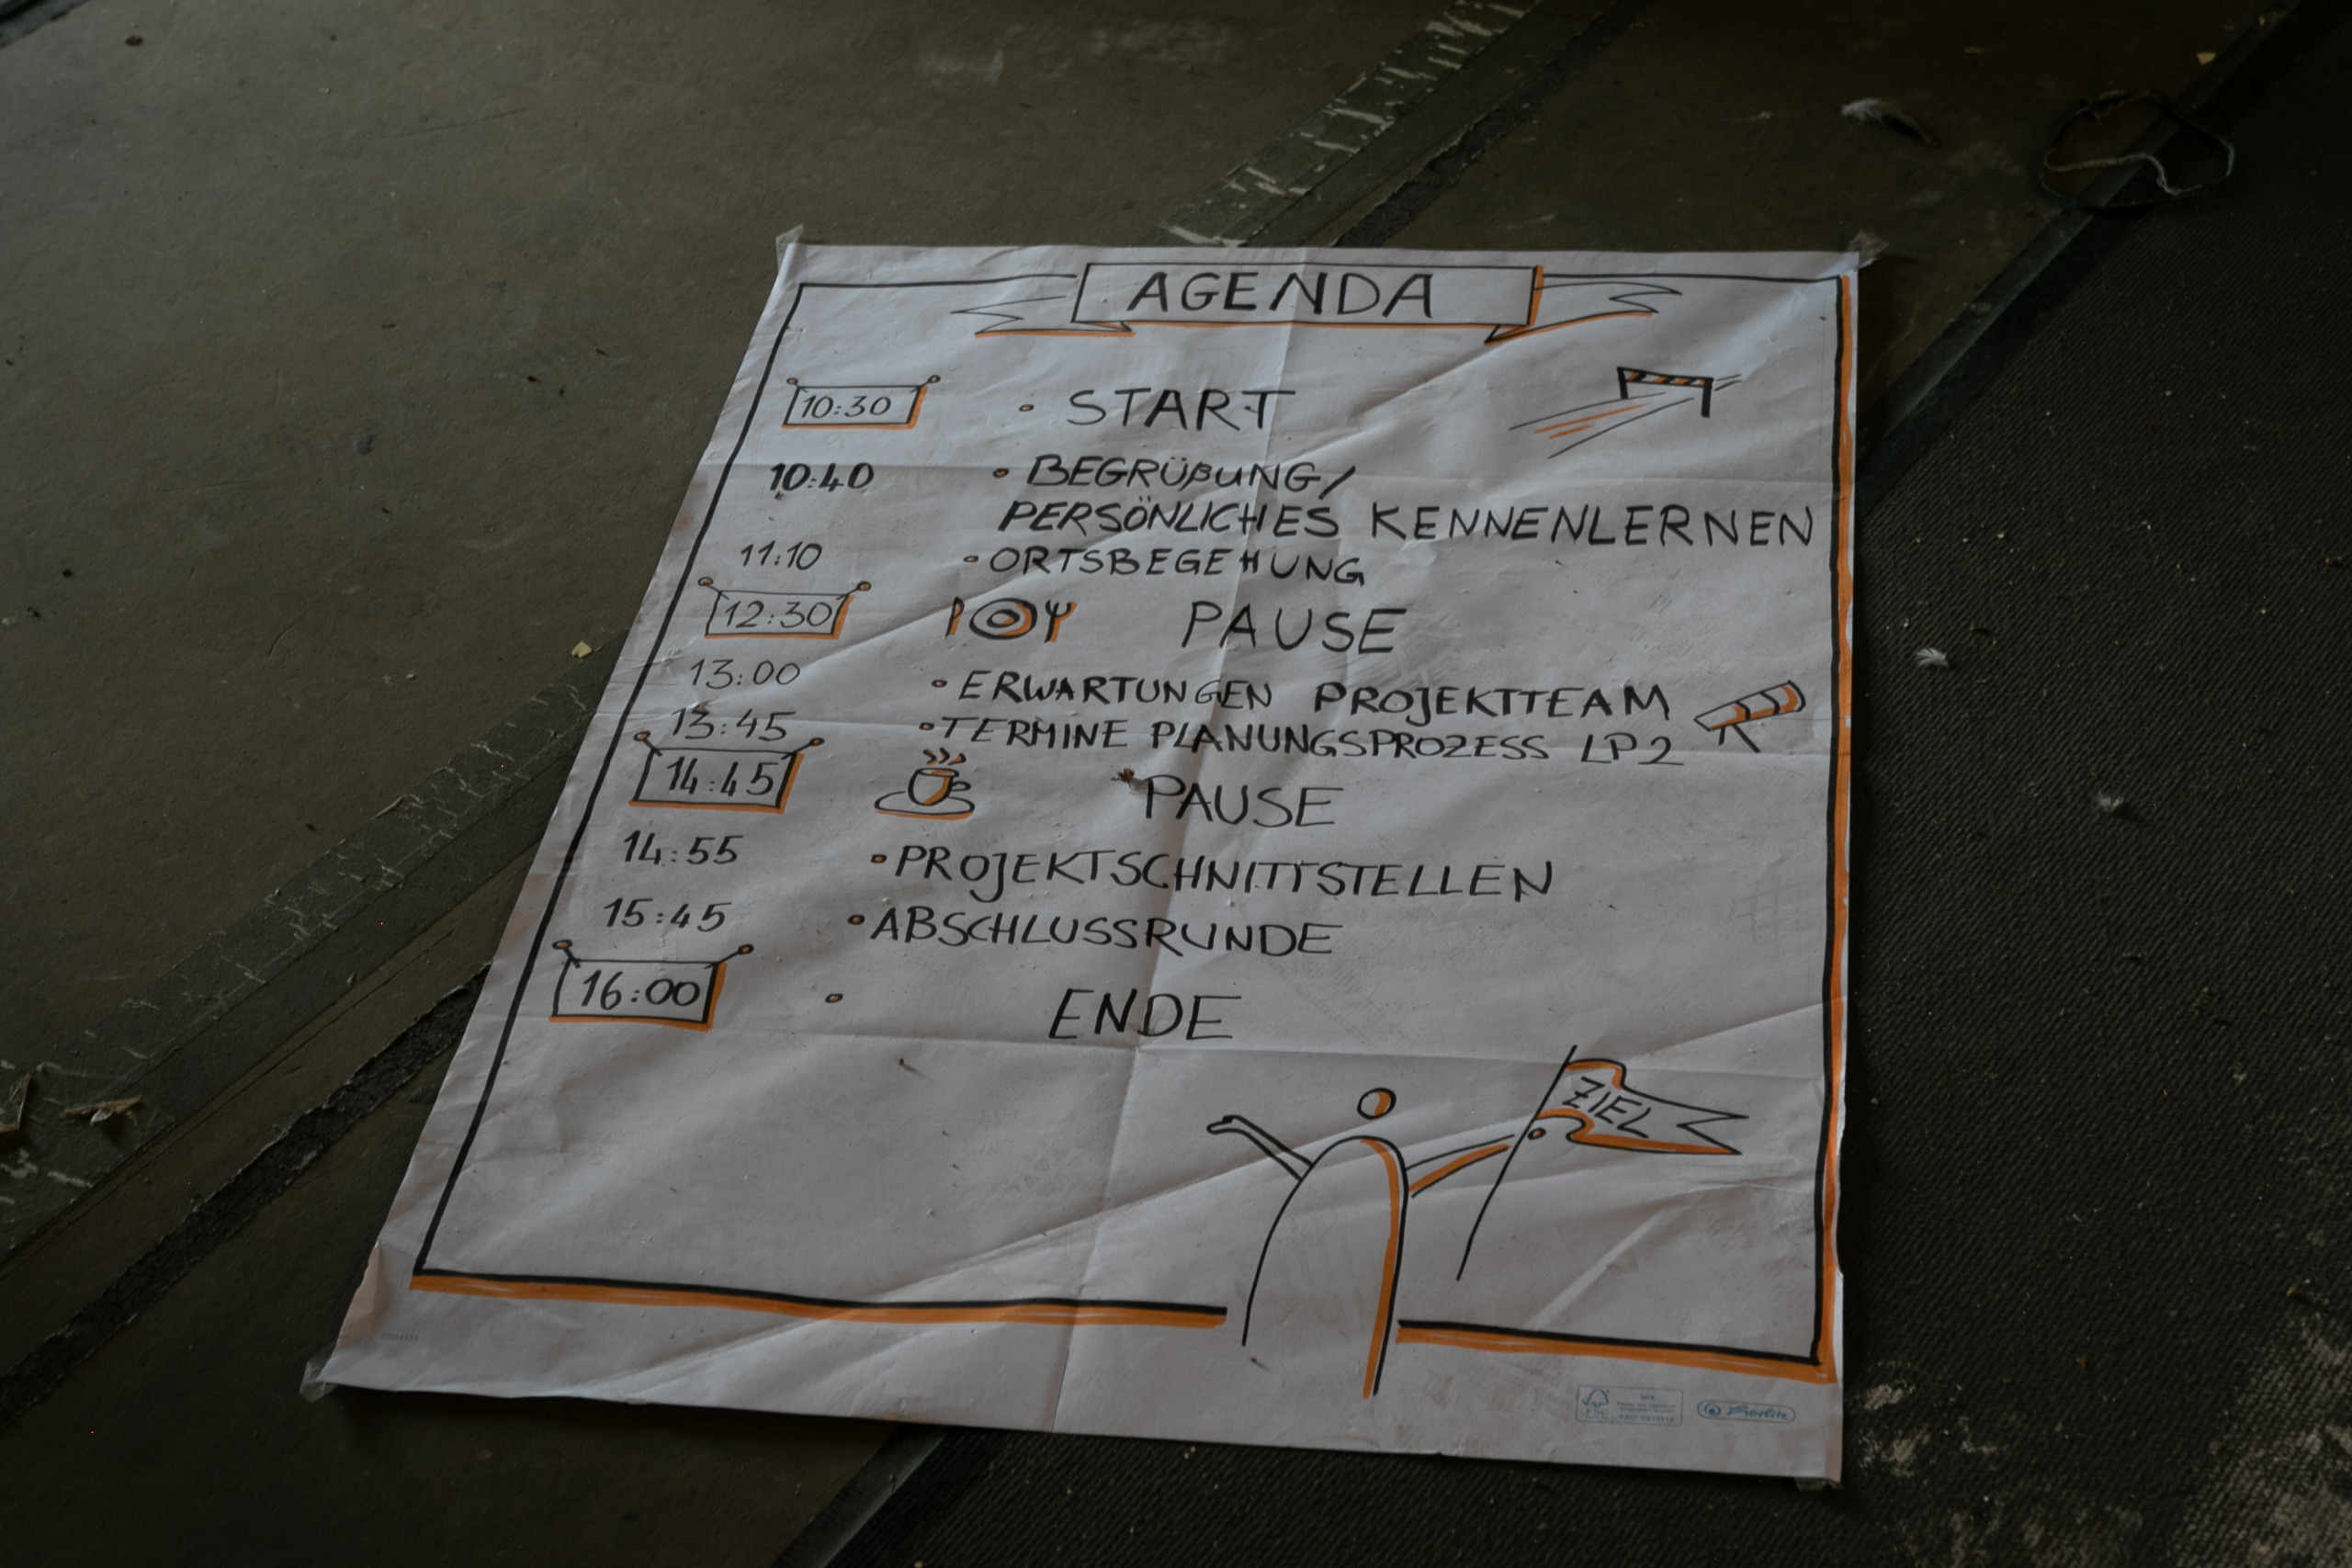 AGENDA
10:30 • START
10:40 • BEGRÜßUNG/
PERSÖNLICHES KENNENLERNEN
11:10 • ORTSBEGEHUNG
12:30 PAUSE
13:00 • ERWARTUNGEN PROJEKTTEAM
13:45 • TERMINE PLANUNGSPROZESS LP2
14:45 PAUSE
14:55 • PROJEKTSCHNITTSTELLEN
15:45 • ABSCHLUSSRUNDE
16:00 • ENDE
ZIEL